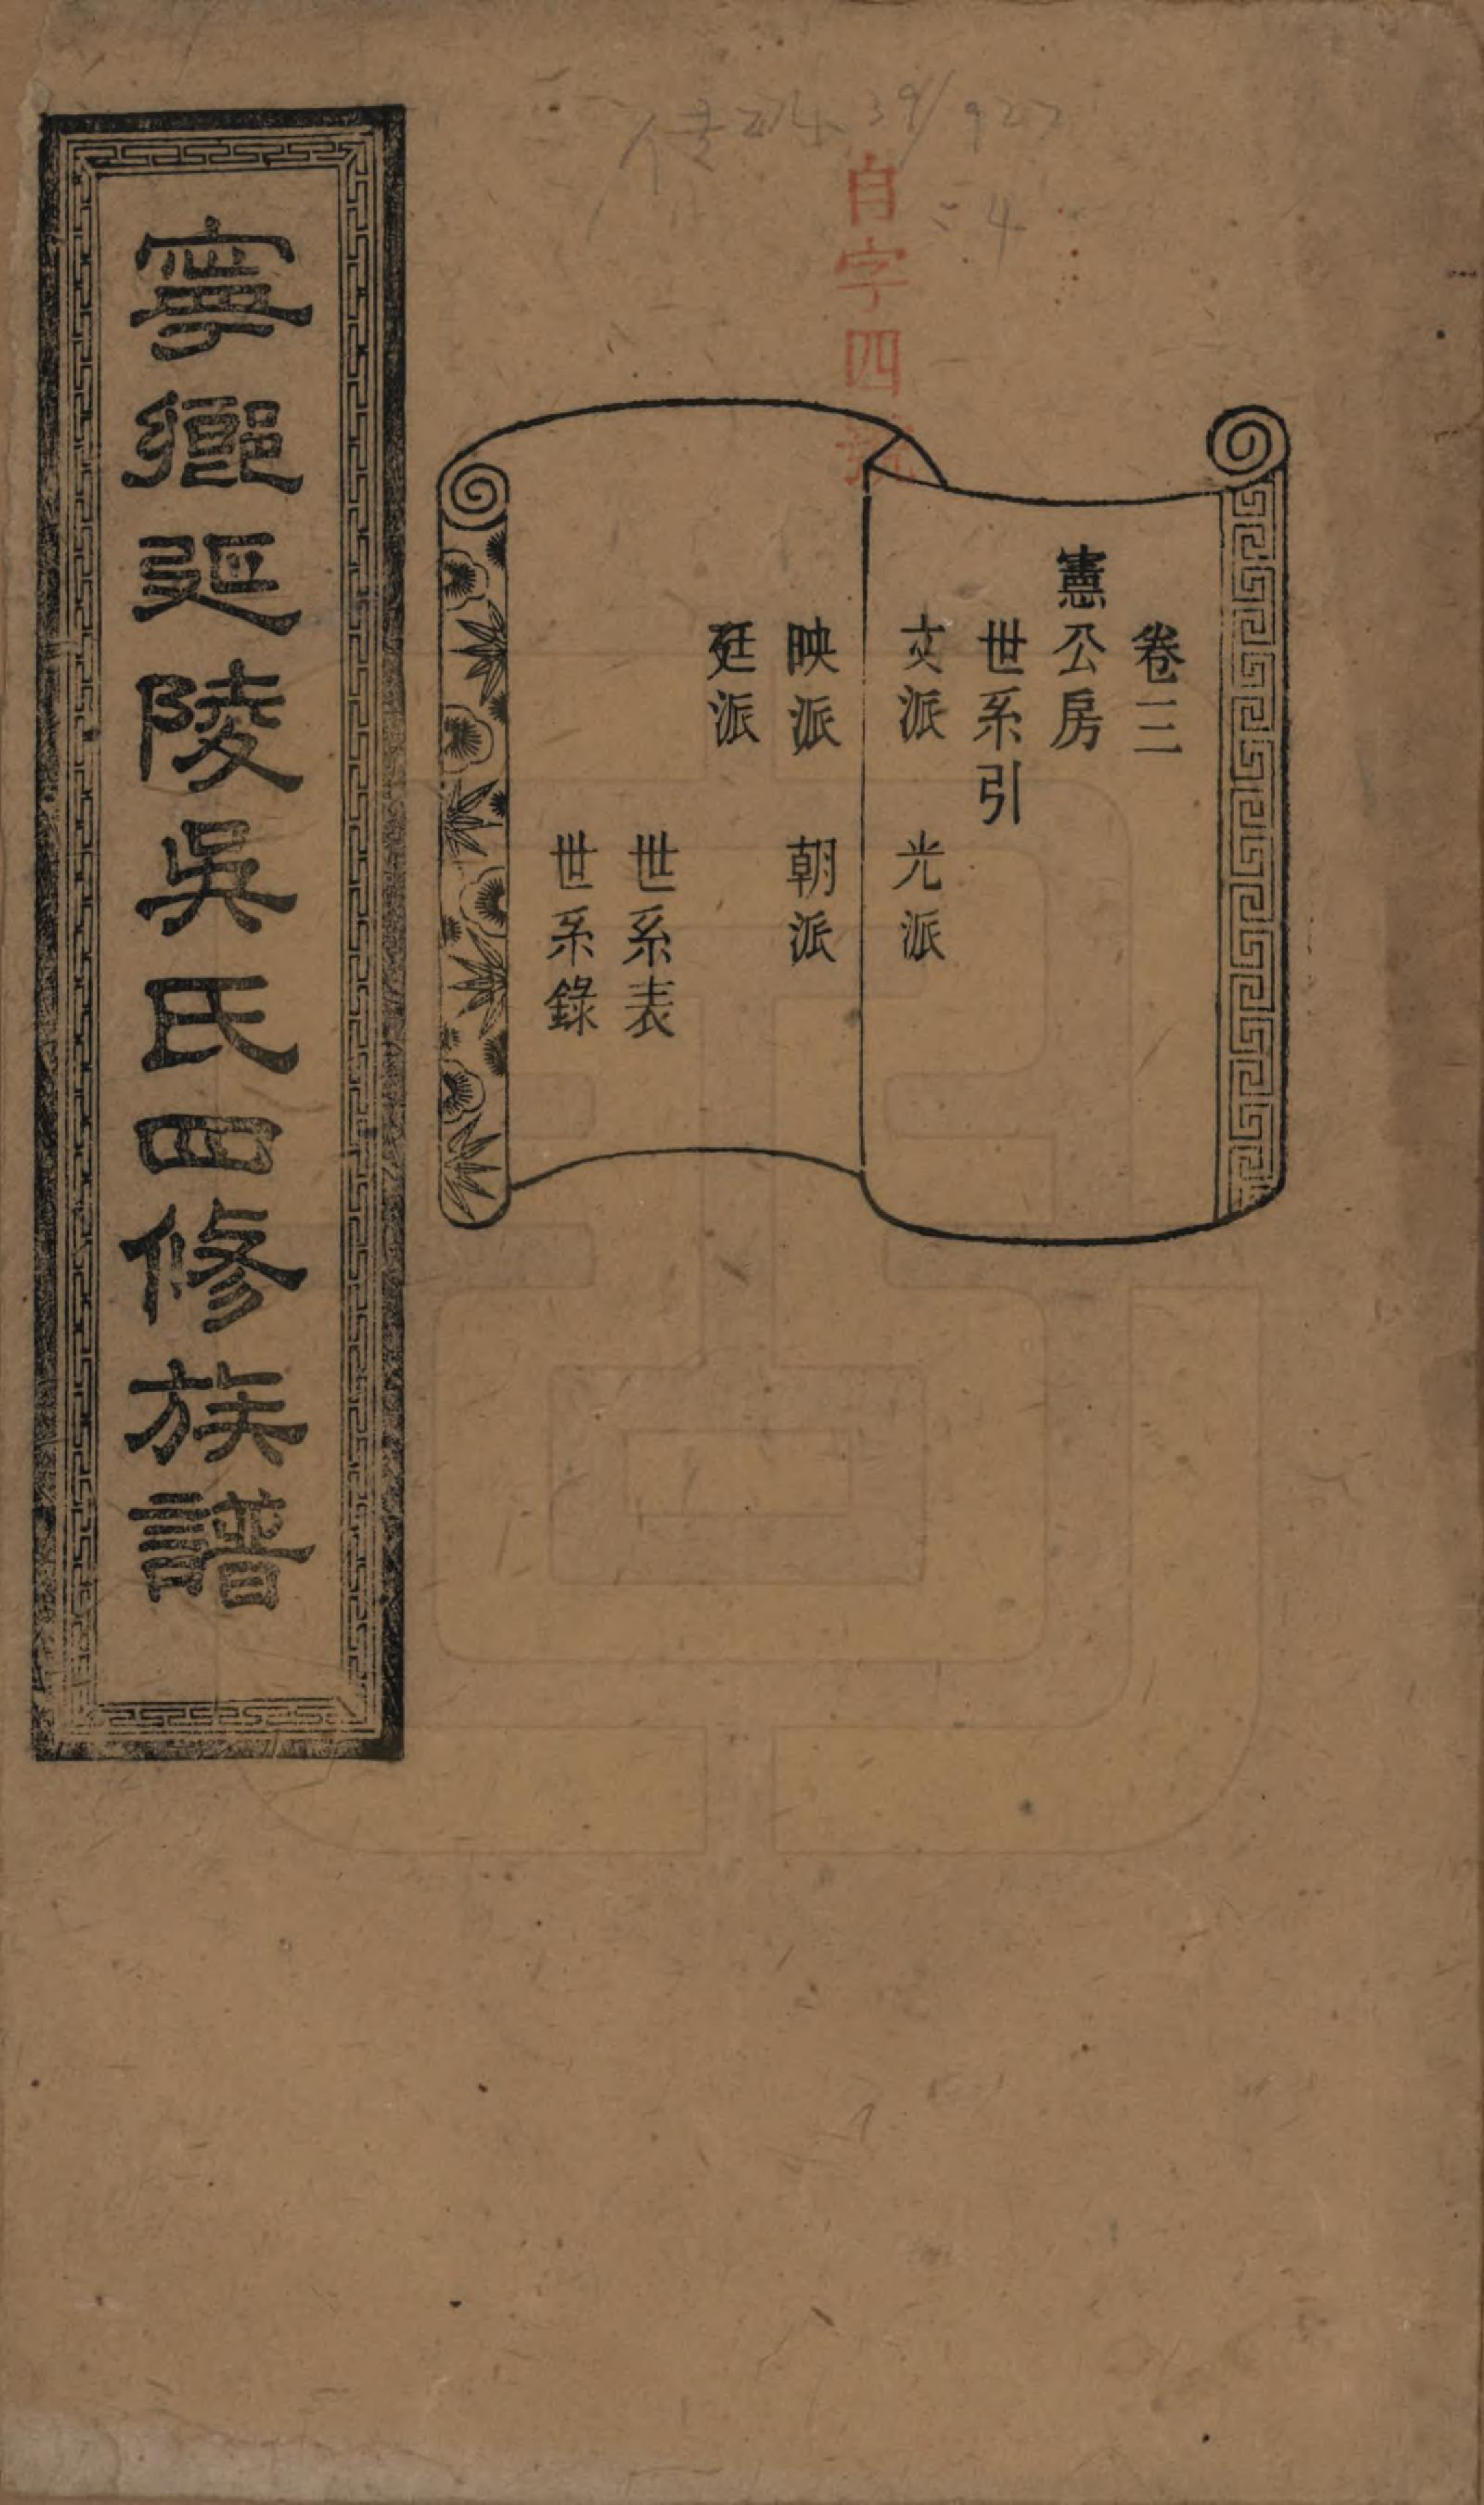 卷三
憲公房
世系引
文派 光派
映派 朝派
廷派
世系表
世系錄
寧鄉延陵吳氏四修族譜
自字四號
39/927
:4